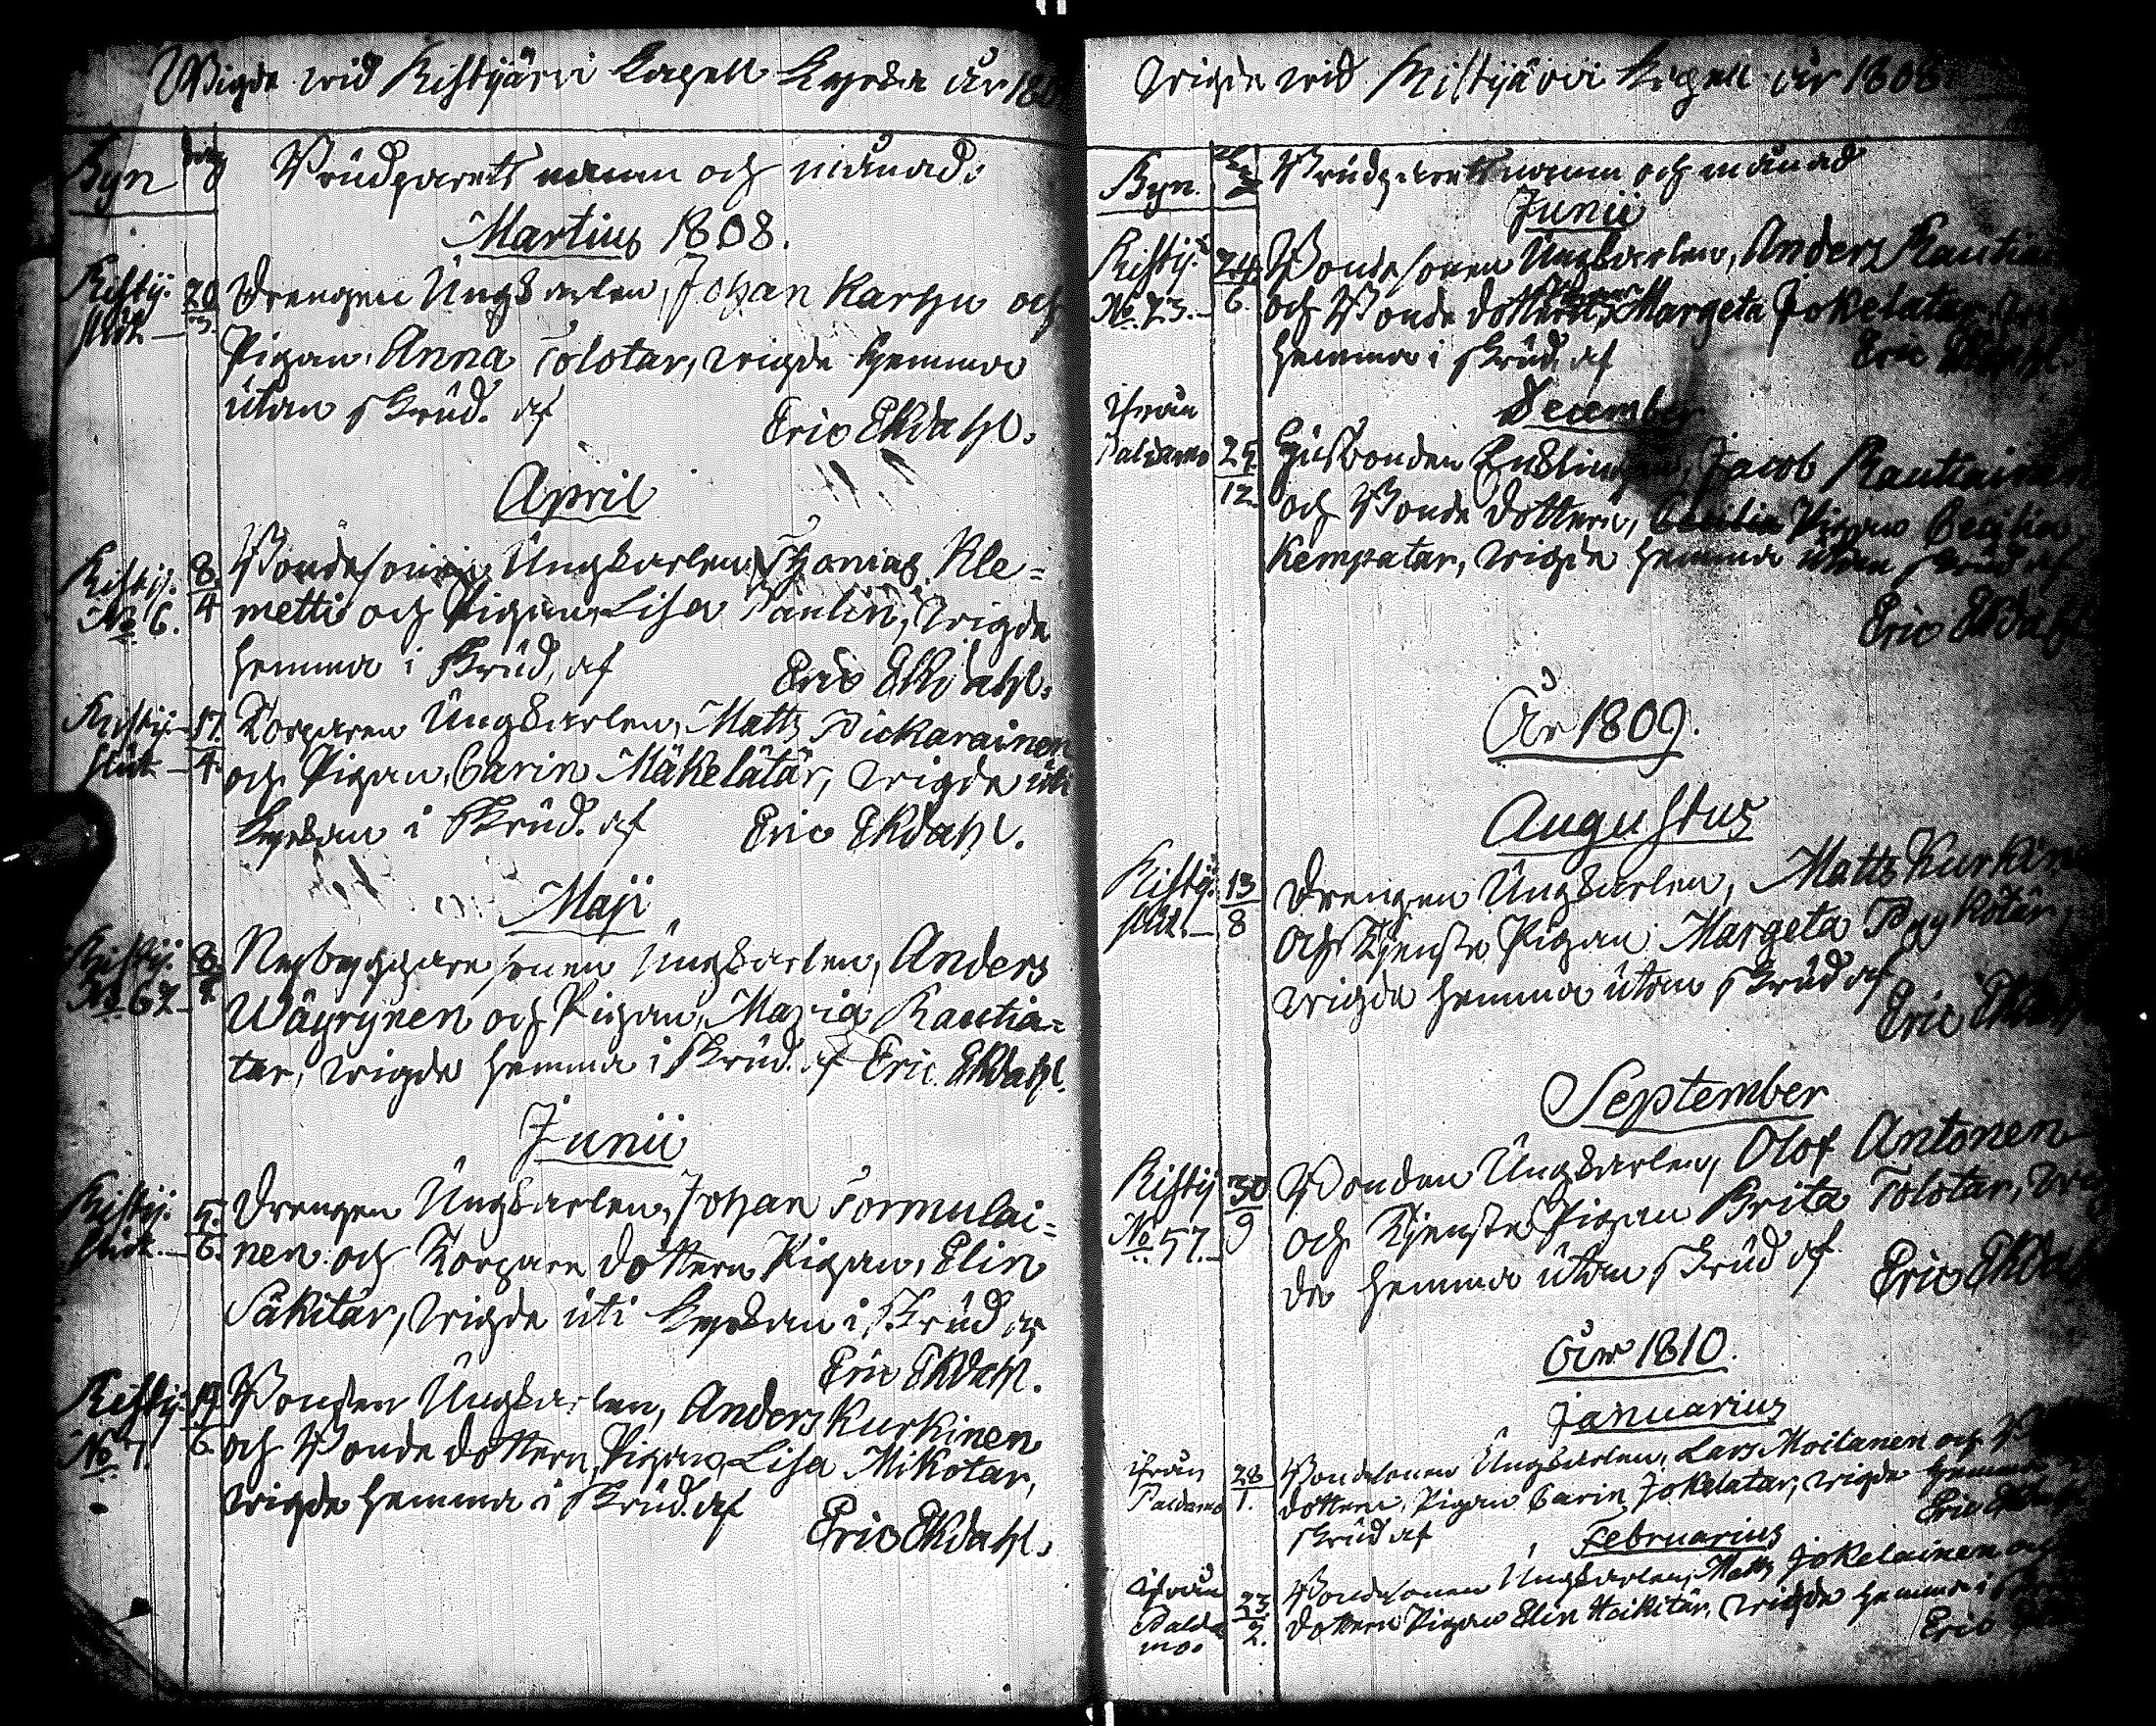 Wigde wid Ristijärvi Capell Kyrka år 180
Byn dag Brudparets namn och månad.
Martius 1808.
Ristij. 20 Drengen Ungkarlen, Johan Karhu och
slut. — 3. Pigan, Anna Tolotar, wigde hemma
utan skrud. af
Eric Ekdahl.
April
Ristij. 8. Bondesonen Ungkarlen Thomas Kle=
No 6. 4 metti och Pigan, Lisa Paulin, wigde
hemma i skrud, af
Eric Ekdahl.
Ristij. 17. Torparen Ungkarlen, Matts Pickarainen
slut — 4. och Pigan, Carin Mäkelätär, wigde uti
kyrkan i skrud. af Eric Ekdahl.
Maji
Ristij. 8. Nybyggare sonen Ungkarlen, Anders
No 67 — Wäyrynen och Pigan, Maria Rautia=
tar, wigde hemma i skrud. af Eric Ekdahl.
Junii
Ristij. 5. Drengen Ungkarlen, Johan Tormulai=
slut. — 6. nen och Torpare dottern Pigan, Elin
Säkitär, wigde uti kyrkan i skrud af
Eric Ekdahl.
Ristij. 19. Bonden Ungkarlen, Anders Kurkinen
No 7. 6. och Bonde dottern, Pigan, Lisa Mikotar,
wigde hemma i skrud. af
Eric Ekdahl.
Wigde wid Ristijärvi Capell år 1808
Byn. Brudparets namn och månad
Junii
Ristij. 24. Bondesonen Ungkarlen, Anders Rautia
No 73. — 6. och Bonde dottern, Pigan Margeta Jokelatar,
hemma i skrud, af Eric Ekdahl.
December
ifrån
Paldamo 25. Husbonden Enklingen, Jacob Rautiainen
12. och Bonde dottern, Pigan Cecilia
Kempatar, wigde hemma utan skrud af
Eric Ekdahl
År 1809.
Augustus
Ristij. 13 Drengen Ungkarlen, Matts Kurkin
slut. — 8 och Tjenste Pigan Margeta Pyykötär,
wigde hemma utan skrud af
Eric Ekdahl
September
Ristij 30 Bonden Ungkarlen, Olof Antonen
No 57. — 9 och Tjenste Pigan Brita Tolotar, wig
de hemma utan skrud af Eric Ekdahl
År 1810.
Januarius
ifrån 28 Bondesonen Ungkarlen, Lars Moilanen och
Paldamo 1. dottern, Pigan Carin Jokelatar, wigde hemma
skrud af Eric Ekdahl
Februarius
ifrån 23. Bondesonen Ungkarlen, Matts Jokelainen och
Palda 2. dottern Pigan Elin Heikitär, wigde hemma i
mo. Eric